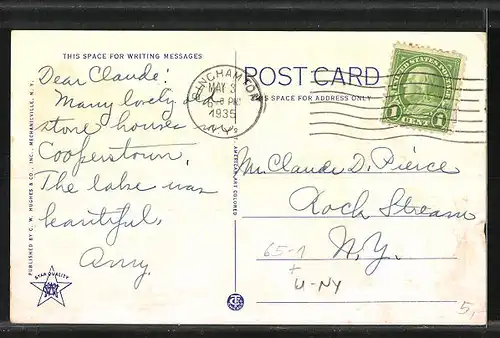 THIS SPACE FOR WRITING MESSAGES
Dear Claude:
Many lovely old
stone houses in
Cooperstown.
The lake was
beautiful.
Amy.
PUBLISHED BY C. W. HUGHES & CO., INC., MECHANICVILLE, N. Y.
STAR QUALITY
BINGHAMTON
MAY 3
6- PM
1935
N.Y.
POST CARD
THIS SPACE FOR ADDRESS ONLY
UNITED STATES POSTAGE
1 CENT 1
AMERICAN ART COLORED
Mr Claude D. Pierce
Rock Stream
N.Y.
65-1
+
U-NY
5,